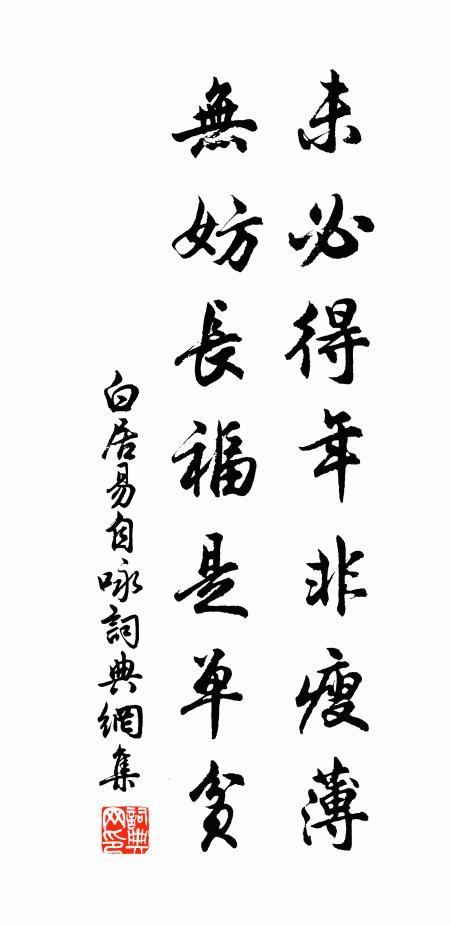 未必得年非瘦薄
無妨長福是单貧
白居易自咏詞典網集
詞典網印